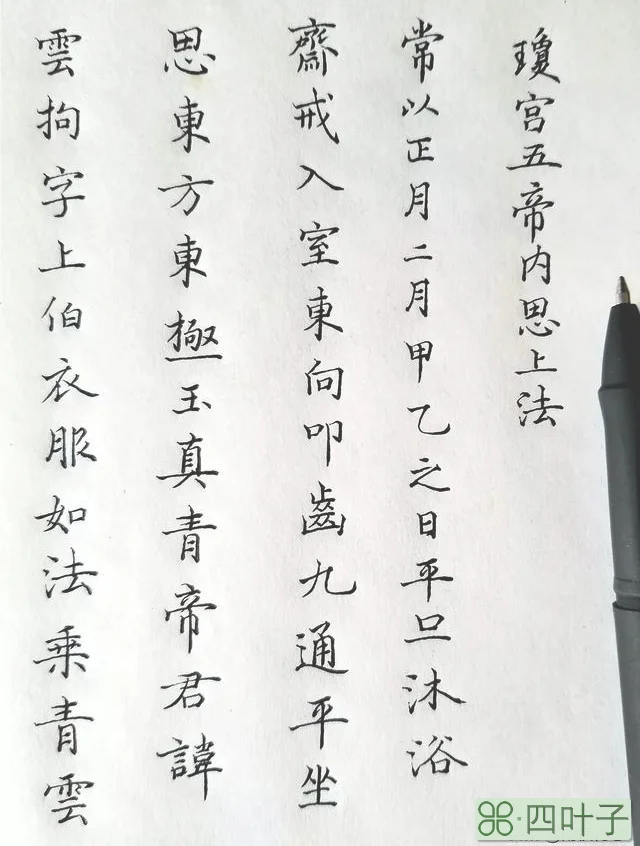 瓊宫五帝内思上法
常以正月二月甲乙之日平旦沐浴
齋戒入室東向叩齒九通平坐
思東方東極玉真青帝君諱
雲拘字上伯衣服如法乗青雲
四叶子